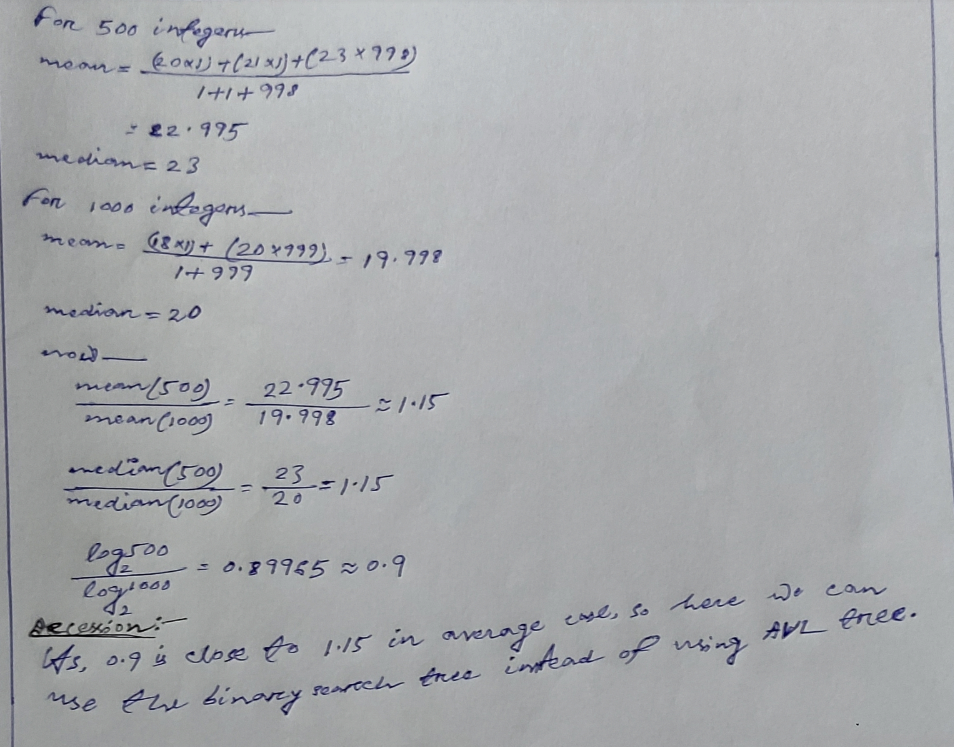 For 500 integers
mean = (20×1)+(21×1)+(23×998)
1+1+998
= 22.995
median = 23
For 1000 integers
mean = (18×1)+(20×999) = 19.998
1+999
median = 20
now
mean(500) = 22.995 ≈ 1.15
mean(1000) 19.998
median(500) = 23 = 1.15
median(1000) 20
log₂500 = 0.89965 ≈ 0.9
log₂1000
Decession:-
As, 0.9 is close to 1.15 in average case, so here we can
use the binary search tree instead of using AVL tree.